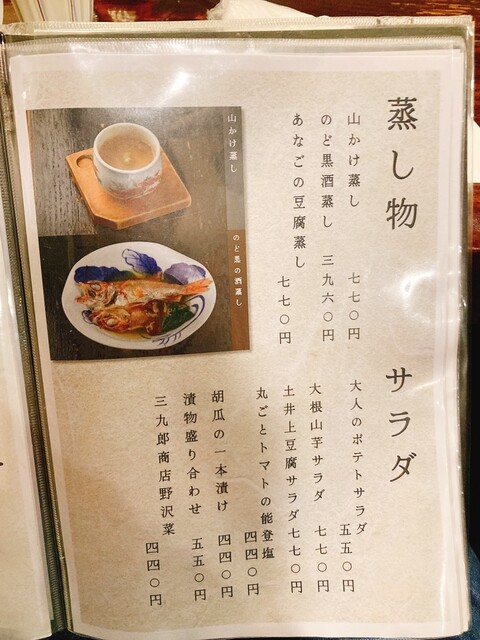 蒸し物
山かけ蒸し 七七〇円
のど黒酒蒸し 三九六〇円
あなごの豆腐蒸し 七七〇円
山かけ蒸し
のど黒の酒蒸し
サラダ
大人のポテトサラダ 五五〇円
大根山芋サラダ 七七〇円
土井上豆腐サラダ 七七〇円
丸ごとトマトの能登塩 四四〇円
胡瓜の一本漬け 四四〇円
漬物盛り合わせ 五五〇円
三九郎商店野沢菜 四四〇円